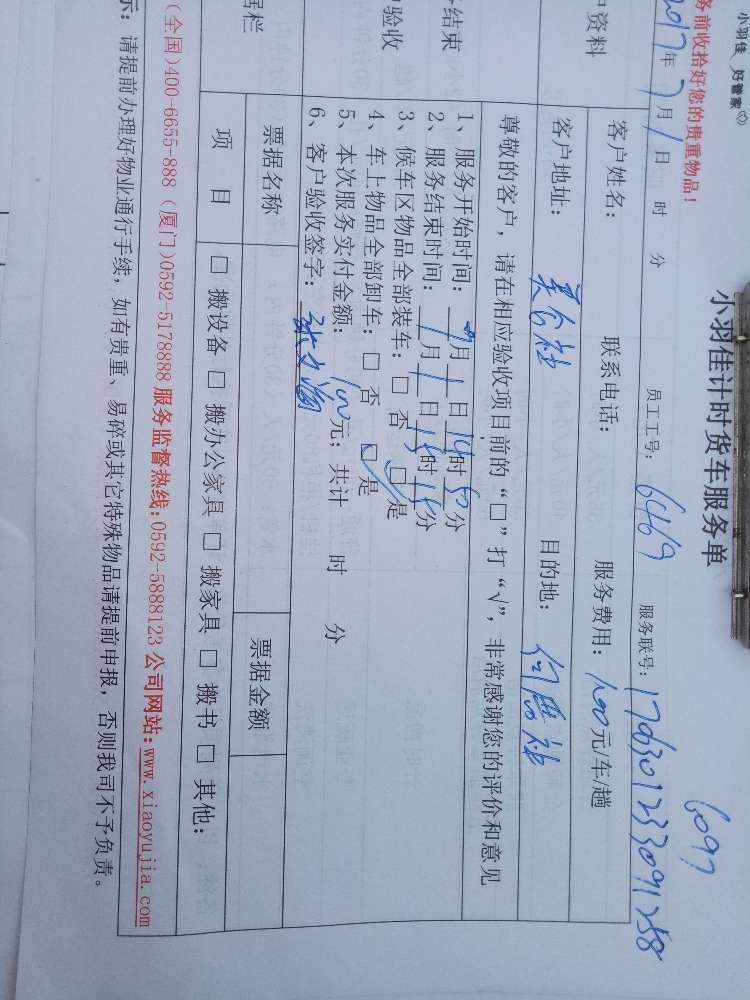 小羽佳 好管家
务前收拾好您的贵重物品!
小羽佳计时货车服务单
6097
2017年7月1日 时 分 员工工号: 6469 服务联号: 1706301233091258
户资料
客户姓名: 联系电话: 服务费用: 100元/车/趟
客户地址: 目的地: 何厝社
务结束
户验收
尊敬的客户,请在相应验收项目前的“□”打“√”,非常感谢您的评价和意见
1、服务开始时间: 7月1日14时50分
2、服务结束时间: 7月1日15时15分
3、候车区物品全部装车: □ 否 □√是
4、车上物品全部卸车: □ 否 □√是
5、本次服务实付金额: 100元; 共计 时 分
6、客户验收签字:
据栏
票据名称 票据金额
项 目 □ 搬设备 □ 搬办公家具 □ 搬家具 □ 搬书 □ 其他:
(全国)400-6655-888 (厦门)0592-5178888 服务监督热线:0592-5888123 公司网站:www.xiaoyujia.com
示: 请提前办理好物业通行手续,如有贵重、易碎或其它特殊物品请提前申报,否则我司不予负责。